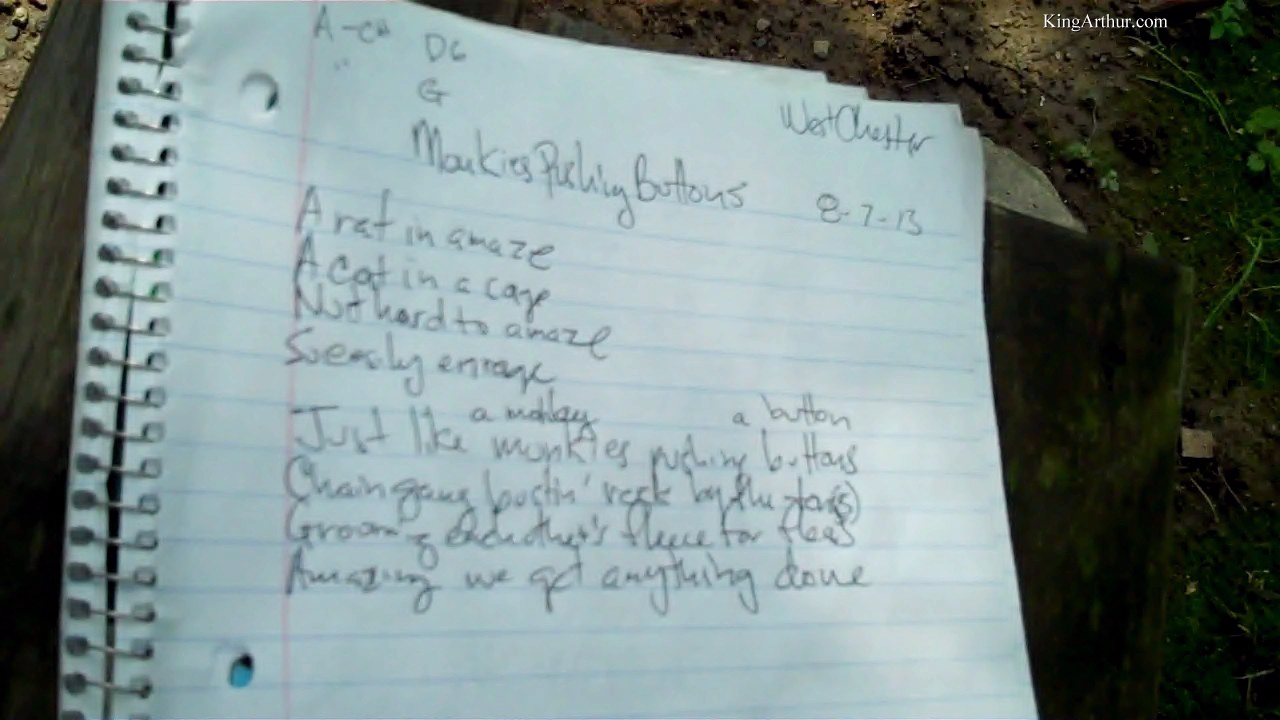 KingArthur.com
A-
DG
"
G
WestChester
Monkies Pushing Buttons
8-7-13
A rat in a maze
A cat in a cage
Not hard to amaze
So easily enrage
a monkey a button
Just like monkies pushing buttons
Chain gang bustin' rock by the ton(s)
Grooming each other's fleece for fleas
Amazing we get anything done